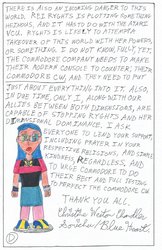 THERE IS ALSO AN ONGOING DANGER TO THIS
WORLD. PLI BIGHTS IS PLOTTING SOMETHING
HEINOUS, AND IT HAS TO DO WITH THE ATARI
VCU. BIGHTS IS LIKELY TO ATTEMPT A
TAKEOVER OF THIS WORLD WITH HER POWERS,
OR SOMETHING. I DO NOT KNOW FULLY, YET.
THE COMMODORE COMPANY NEEDS TO MAKE
THEIR MODULAR CONSOLE TO COUNTER; THEIR
COMMODORE CW, AND THEY NEED TO PUT
JUST ABOUT EVERYTHING INTO IT. ALSO,
IN DUE TIME, ONLY I, ALONG WITH OUR
ALLIES BETWEEN BOTH DIMENSIONS, ARE
CAPABLE OF STRIPPING BIGHTS AND HER
DIMENSIONAL DOMINANCE. I ASK
EVERYONE TO LEND YOUR SUPPORT,
INCLUDING PRAYER AS IN YOUR
RESPECTIVE RELIGIONS, AND SIMPLE
KINDNESS, REGARDLESS, AND
TO URGE COMMODORE TO DO
THEIR BEST AND FULL EFFORT
TO PERFECT THE COMMODORE CW
THANK YOU ALL,
Christine Weston Chandler
Sonichu/Blue Heart